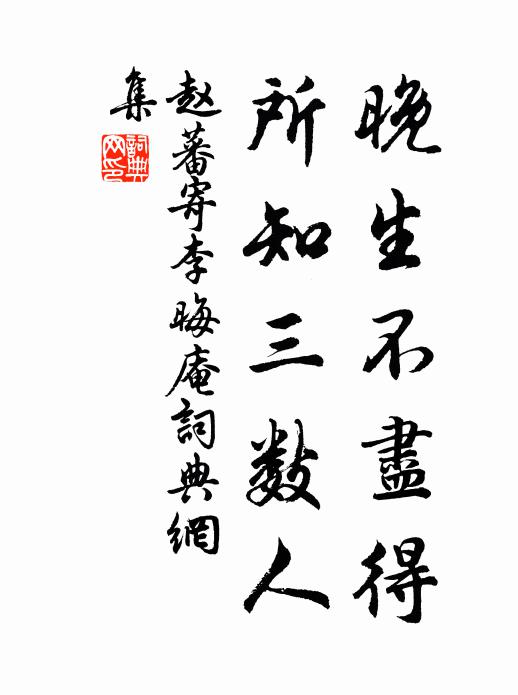 晚生不盡得
所知三数人
赵蕃寄李晦庵詞典網
集
詞典
网印